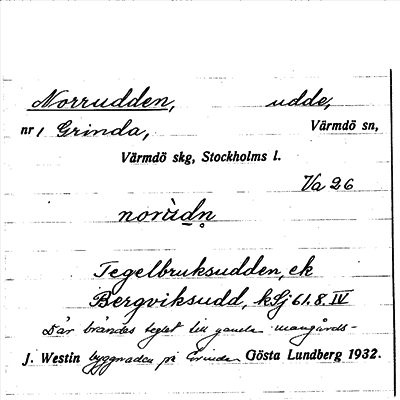 Norrudden, udde,
nr 1 Grinda, Värmdö sn,
Värmdö skg, Stockholms l.
Va 26
norùdn̥
Tegelbruksudden, ek
Bergviksudd, kSj 61.8.IV
Där brändes teglet till gamla mangårds-
J. Westin byggnaden på Grinda Gösta Lundberg 1932.